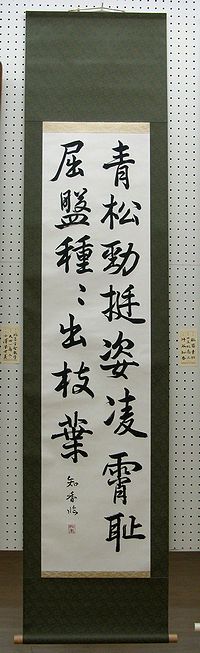 青松勁挺姿凌霄恥
屈盤種〻出枝葉
知香臨